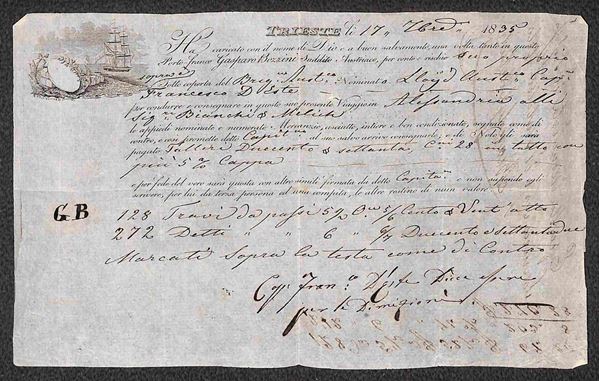 TRIESTE li 17 7bre 1835
Ha caricato con il nome di Dio e a buon salvamento, una volta tanto in questo
Porto-franco Gaspari Bozzini Suddito Austriaco, per conto e rischio suo proprio
sopra
Sotto coperta del Brig. Aust. Nominato Lloyd Austro Cap.
Francesco D'Este
per condurre e consegnare in questo suo presente Viaggio in Alessandria alli
Sig.ri Bianchi &
le appiedi nominate e numerate Mercanzie, asciutte, intiere e ben condizionate, segnate come di
contro, e così promette detto Capitano al suo salvo arrivo consegnarle, e di Nolo gli sarà
pagato Talleri Duecento & settanta C.mi 28 in tutto con
più 5 % Cappa
e per fede del vero sarà questa con altre simili firmata da detto Capitan e non sapendo egli
scrivere, per lui da terza persona ed una compita, le altre restino di niun valore.
G.B
128 Travi da passi 5 1/2 Cento & Vent'otto
272 Detti " " 6 Duecento e settantadue
Marcati Sopra la testa come di Contro
Cap. Fran.o D'Este Dice
per le